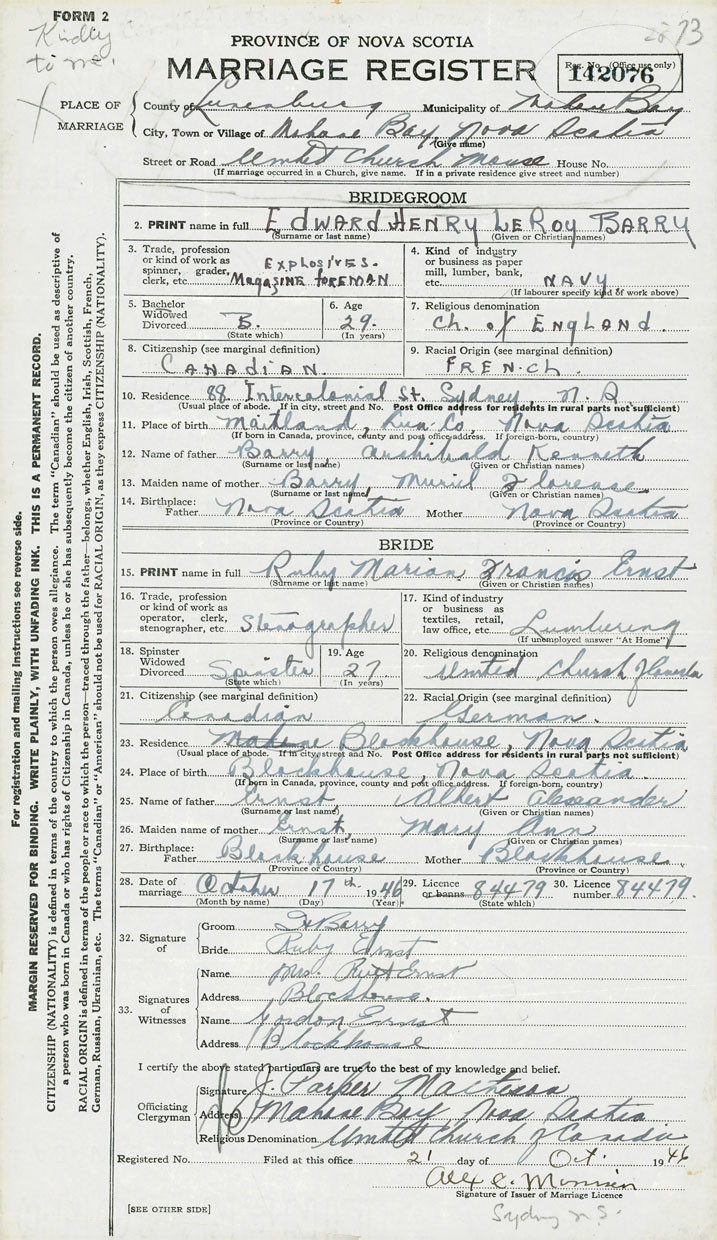 FORM 2
Kindly
to me.
73
PROVINCE OF NOVA SCOTIA
MARRIAGE REGISTER
Reg. No. (Office use only)
142076
PLACE OF MARRIAGE
County of Lunenburg Municipality of Mahone Bay
City, Town or Village of Mahone Bay, Nova Scotia
(Give name)
Street or Road United Church Manse House No.
(If marriage occurred in a Church, give name. If in a private residence give street and number)
BRIDEGROOM
2. PRINT name in full EDWARD HENRY LEROY BARRY
(Surname or last name) (Given or Christian names)
3. Trade, profession or kind of work as spinner, grader, clerk, etc. EXPLOSIVES. MAGASINE FOREMAN
4. Kind of industry or business as paper mill, lumber, bank, etc. NAVY
(If labourer specify kind of work above)
5. Bachelor Widowed Divorced B.
(State which)
6. Age 29.
(In years)
7. Religious denomination Ch. of ENGLAND.
8. Citizenship (see marginal definition) CANADIAN.
9. Racial Origin (see marginal definition) FRENCH.
10. Residence 88 Intercolonial St. Sydney, N. S
(Usual place of abode. If in city, street and No. Post Office address for residents in rural parts not sufficient)
11. Place of birth Maitland, Lun. Co, Nova Scotia
(If born in Canada, province, county and post office address. If foreign-born, country)
12. Name of father Barry, Archibald Kenneth
(Surname or last name) (Given or Christian names)
13. Maiden name of mother Barry, Muriel Florense
(Surname or last name) (Given or Christian names)
14. Birthplace: Father Nova Scotia Mother Nova Scotia
(Province or Country) (Province or Country)
BRIDE
15. PRINT name in full Ruby Marian Francis Ernst
(Surname or last name) (Given or Christian names)
16. Trade, profession or kind of work as operator, clerk, stenographer, etc. Stenographer
17. Kind of industry or business as textiles, retail, law office, etc. Lumbering
(If unemployed answer "At Home")
18. Spinster Widowed Divorced Spinster
(State which)
19. Age 27
(In years)
20. Religious denomination United Church of Canada
21. Citizenship (see marginal definition) Canadian
22. Racial Origin (see marginal definition) German.
23. Residence Mahone Blockhouse, Nova Scotia
(Usual place of abode. If in city, street and No. Post Office address for residents in rural parts not sufficient)
24. Place of birth Blockhouse, Nova Scotia.
(If born in Canada, province, county and post office address. If foreign-born, country)
25. Name of father Ernst, Albert Alexander
(Surname or last name) (Given or Christian names)
26. Maiden name of mother Ernst, Mary Ann
(Surname or last name) (Given or Christian names)
27. Birthplace: Father Blockhouse Mother Blockhouse.
(Province or Country) (Province or Country)
28. Date of marriage October 17th 1946
(Month by name) (Day) (Year)
29. Licence or banns 84479
(State which)
30. Licence number 84479.
32. Signature of
Groom Barry
Bride Ruby Ernst
33. Signatures of Witnesses
Name Mrs. Ernst
Address Blockhouse.
Name Gordon Ernst
Address Blockhouse
I certify the above stated particulars are true to the best of my knowledge and belief.
Officiating Clergyman
Signature J.
Address Mahone Bay, Nova Scotia
Religious Denomination United Church of Canada
Registered No. Filed at this office 21 day of Oct. 1946
Alex C.
Signature of Issuer of Marriage Licence
Sydney N.S.
[SEE OTHER SIDE]
For registration and mailing instructions see reverse side.
MARGIN RESERVED FOR BINDING. WRITE PLAINLY, WITH UNFADING INK. THIS IS A PERMANENT RECORD.
CITIZENSHIP (NATIONALITY) is defined in terms of the country to which the person owes allegiance. The term "Canadian" should be used as descriptive of
a person who was born in Canada or who has rights of Citizenship in Canada, unless he or she has subsequently become the citizen of another country.
RACIAL ORIGIN is defined in terms of the people or race to which the person—traced through the father—belongs, whether English, Irish, Scottish, French,
German, Russian, Ukrainian, etc. The terms "Canadian" or "American" should not be used for RACIAL ORIGIN, as they express CITIZENSHIP (NATIONALITY).